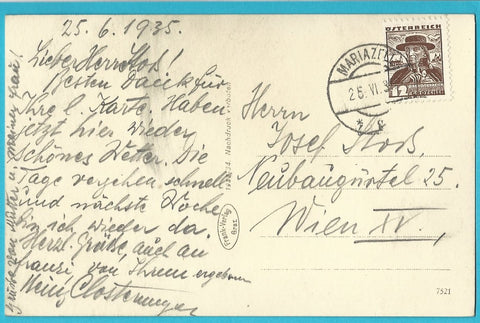 25.6.1935.
Lieber Herr Stoß!
Besten Dank für
Ihre l. Karte. Haben
jetzt hier wieder
schönes Wetter. Die
Tage vergehen schnell
und nächste Woche
bin ich wieder da.
Herzl. Grüße, auch an
von Ihrem ergebenen
Heinz
Grüße von Mutter u. meiner Frau!
Nachdruck verboten
Frank-Verlag
Graz
ÖSTERREICH
12
MARIAZELL
25.VI.3
Herrn
Josef Stoß,
Neubaugürtel 25.
Wien XV,
7521